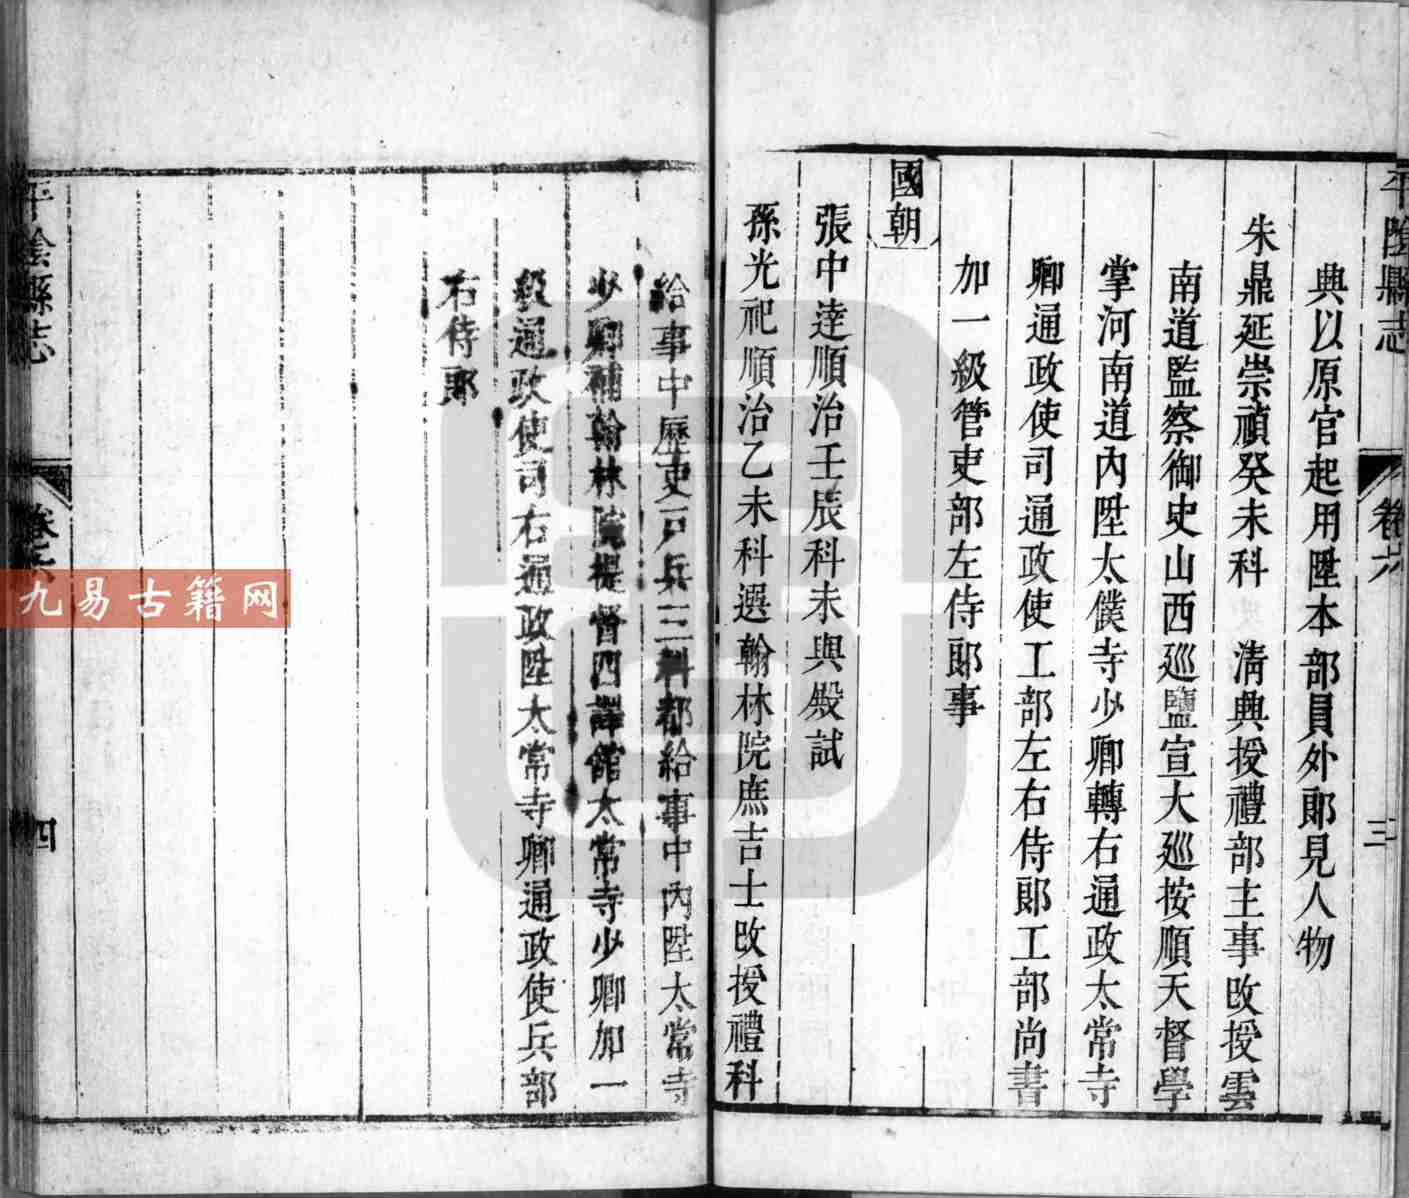 平陰縣志
卷六
三
典以原官起用陞本部員外郎見人物
朱鼎延崇禎癸未科　清典授禮部主事改授雲
南道監察御史山西廵鹽宣大廵按順天督學
掌河南道內陞太僕寺少卿轉右通政太常寺
卿通政使司通政使工部左右侍郎工部尚書
加一級管吏部左侍郎事
國朝
張中逹順治壬辰科未與殿試
孫光祀順治乙未科選翰林院庶吉士改授禮科
給事中歷吏戸兵三科都給事中內陞太常寺
少卿補翰林院提督四譯館太常寺少卿加一
級通政使司右通政陞太常寺卿通政使兵部
右侍郎
平陰縣志
卷六
四
九易古籍网